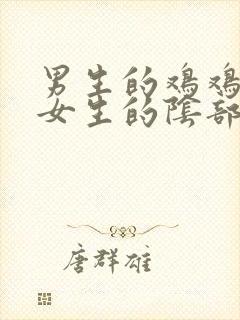 男生的鸡鸡
女生的陰部
唐群雄